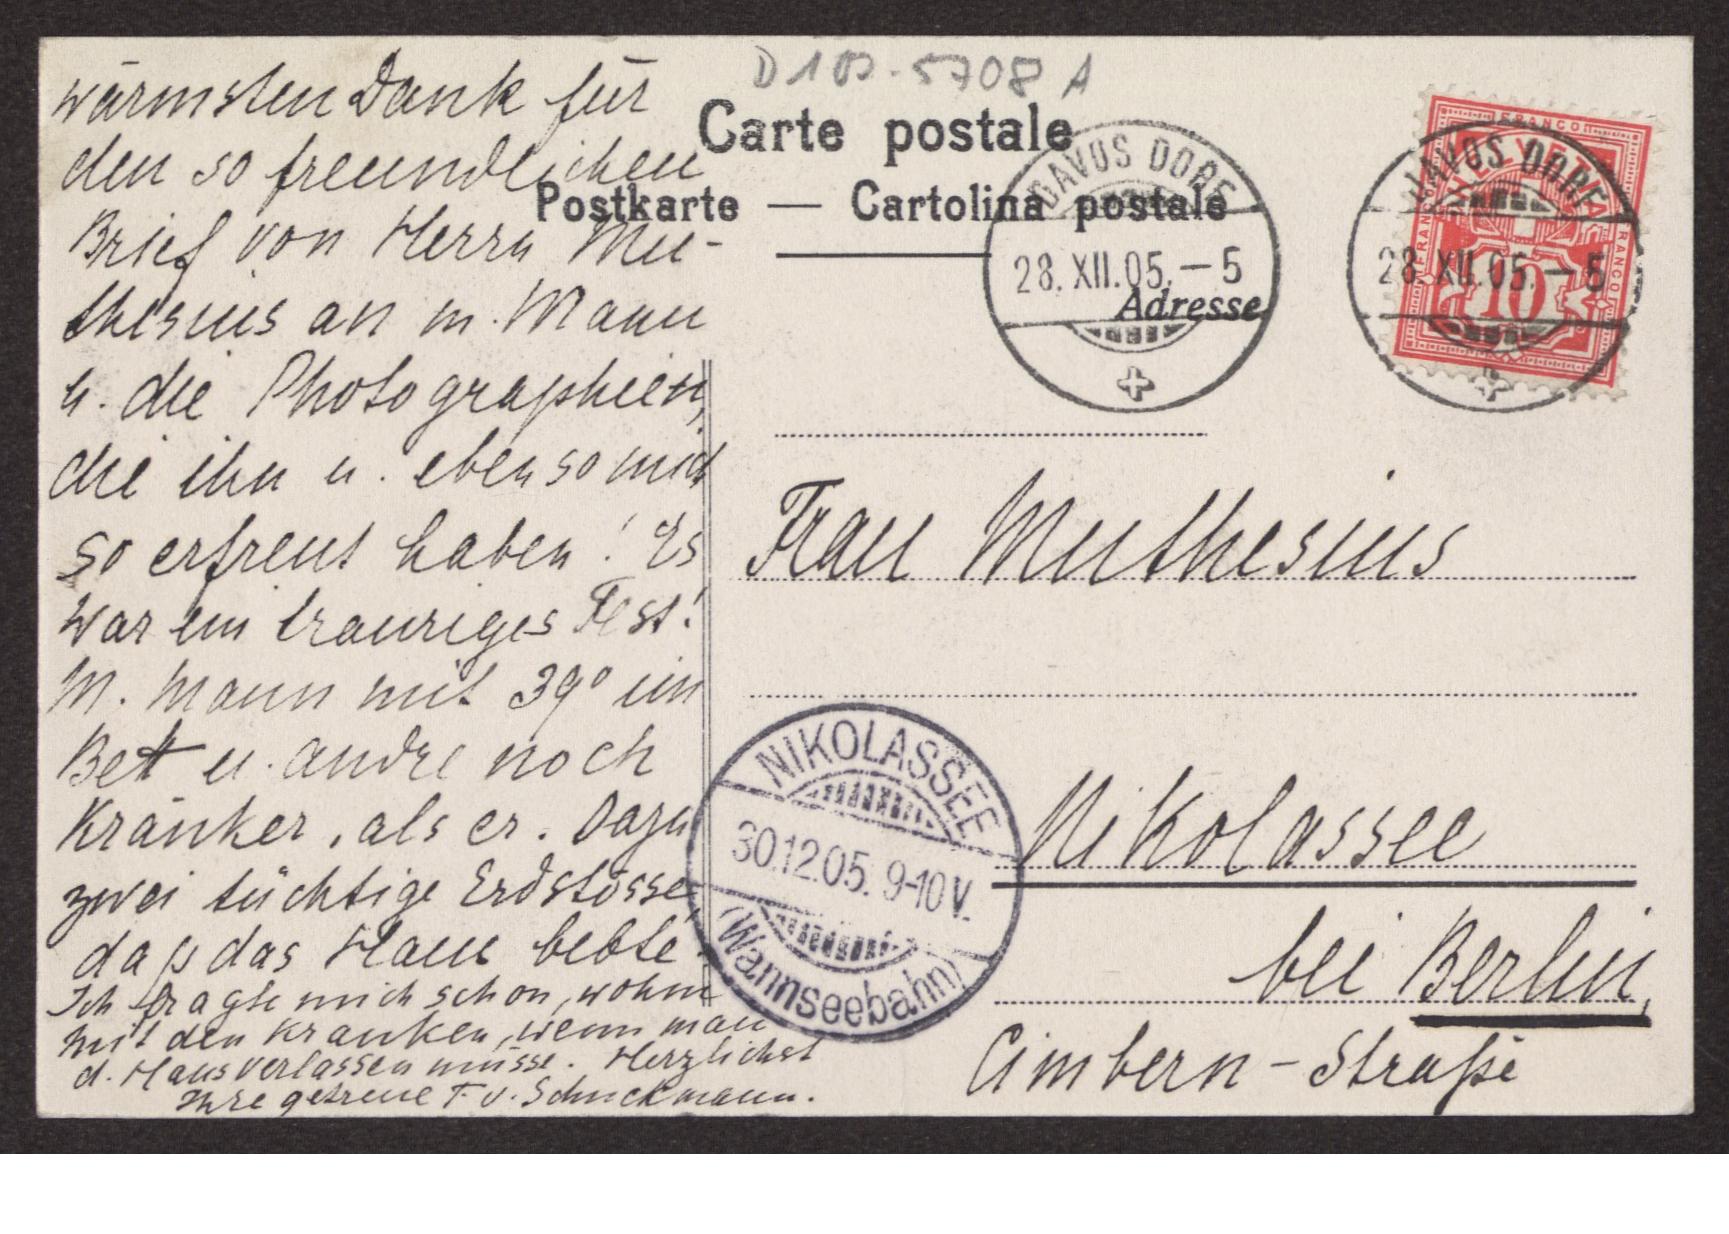 wärmsten Dank für
den so freundlichen
Brief von Herrn Mu-
thesius an m. Mann
u. die Photographien,
die ihn u. ebenso mich
so erfreut haben! Es
war ein trauriges Fest!
M. Mann mit 39° im
Bett u. andre noch
Kränker, als er. Dazu
zwei tüchtige Erdstösse,
daß das Haus bebte.
Ich fragte mich schon, wohin
mit den Kranken, wenn man
d. Haus verlassen müsse. Herzlichst
Ihre getreue F. v. Schuckmann.
D 102-5708 A
Carte postale
Postkarte — Cartolina postale
Adresse
DAVOS DORF
28.XII.05.-5
DAVOS DORF
28.XII.05.-5
FRANCO
HELVETIA
FRANCO
FRANCO
10
Frau Muthesius
Nikolassee
bei Berlin,
Cimbern-Straße
NIKOLASSEE
30.12.05. 9-10V.
(Wannseebahn)